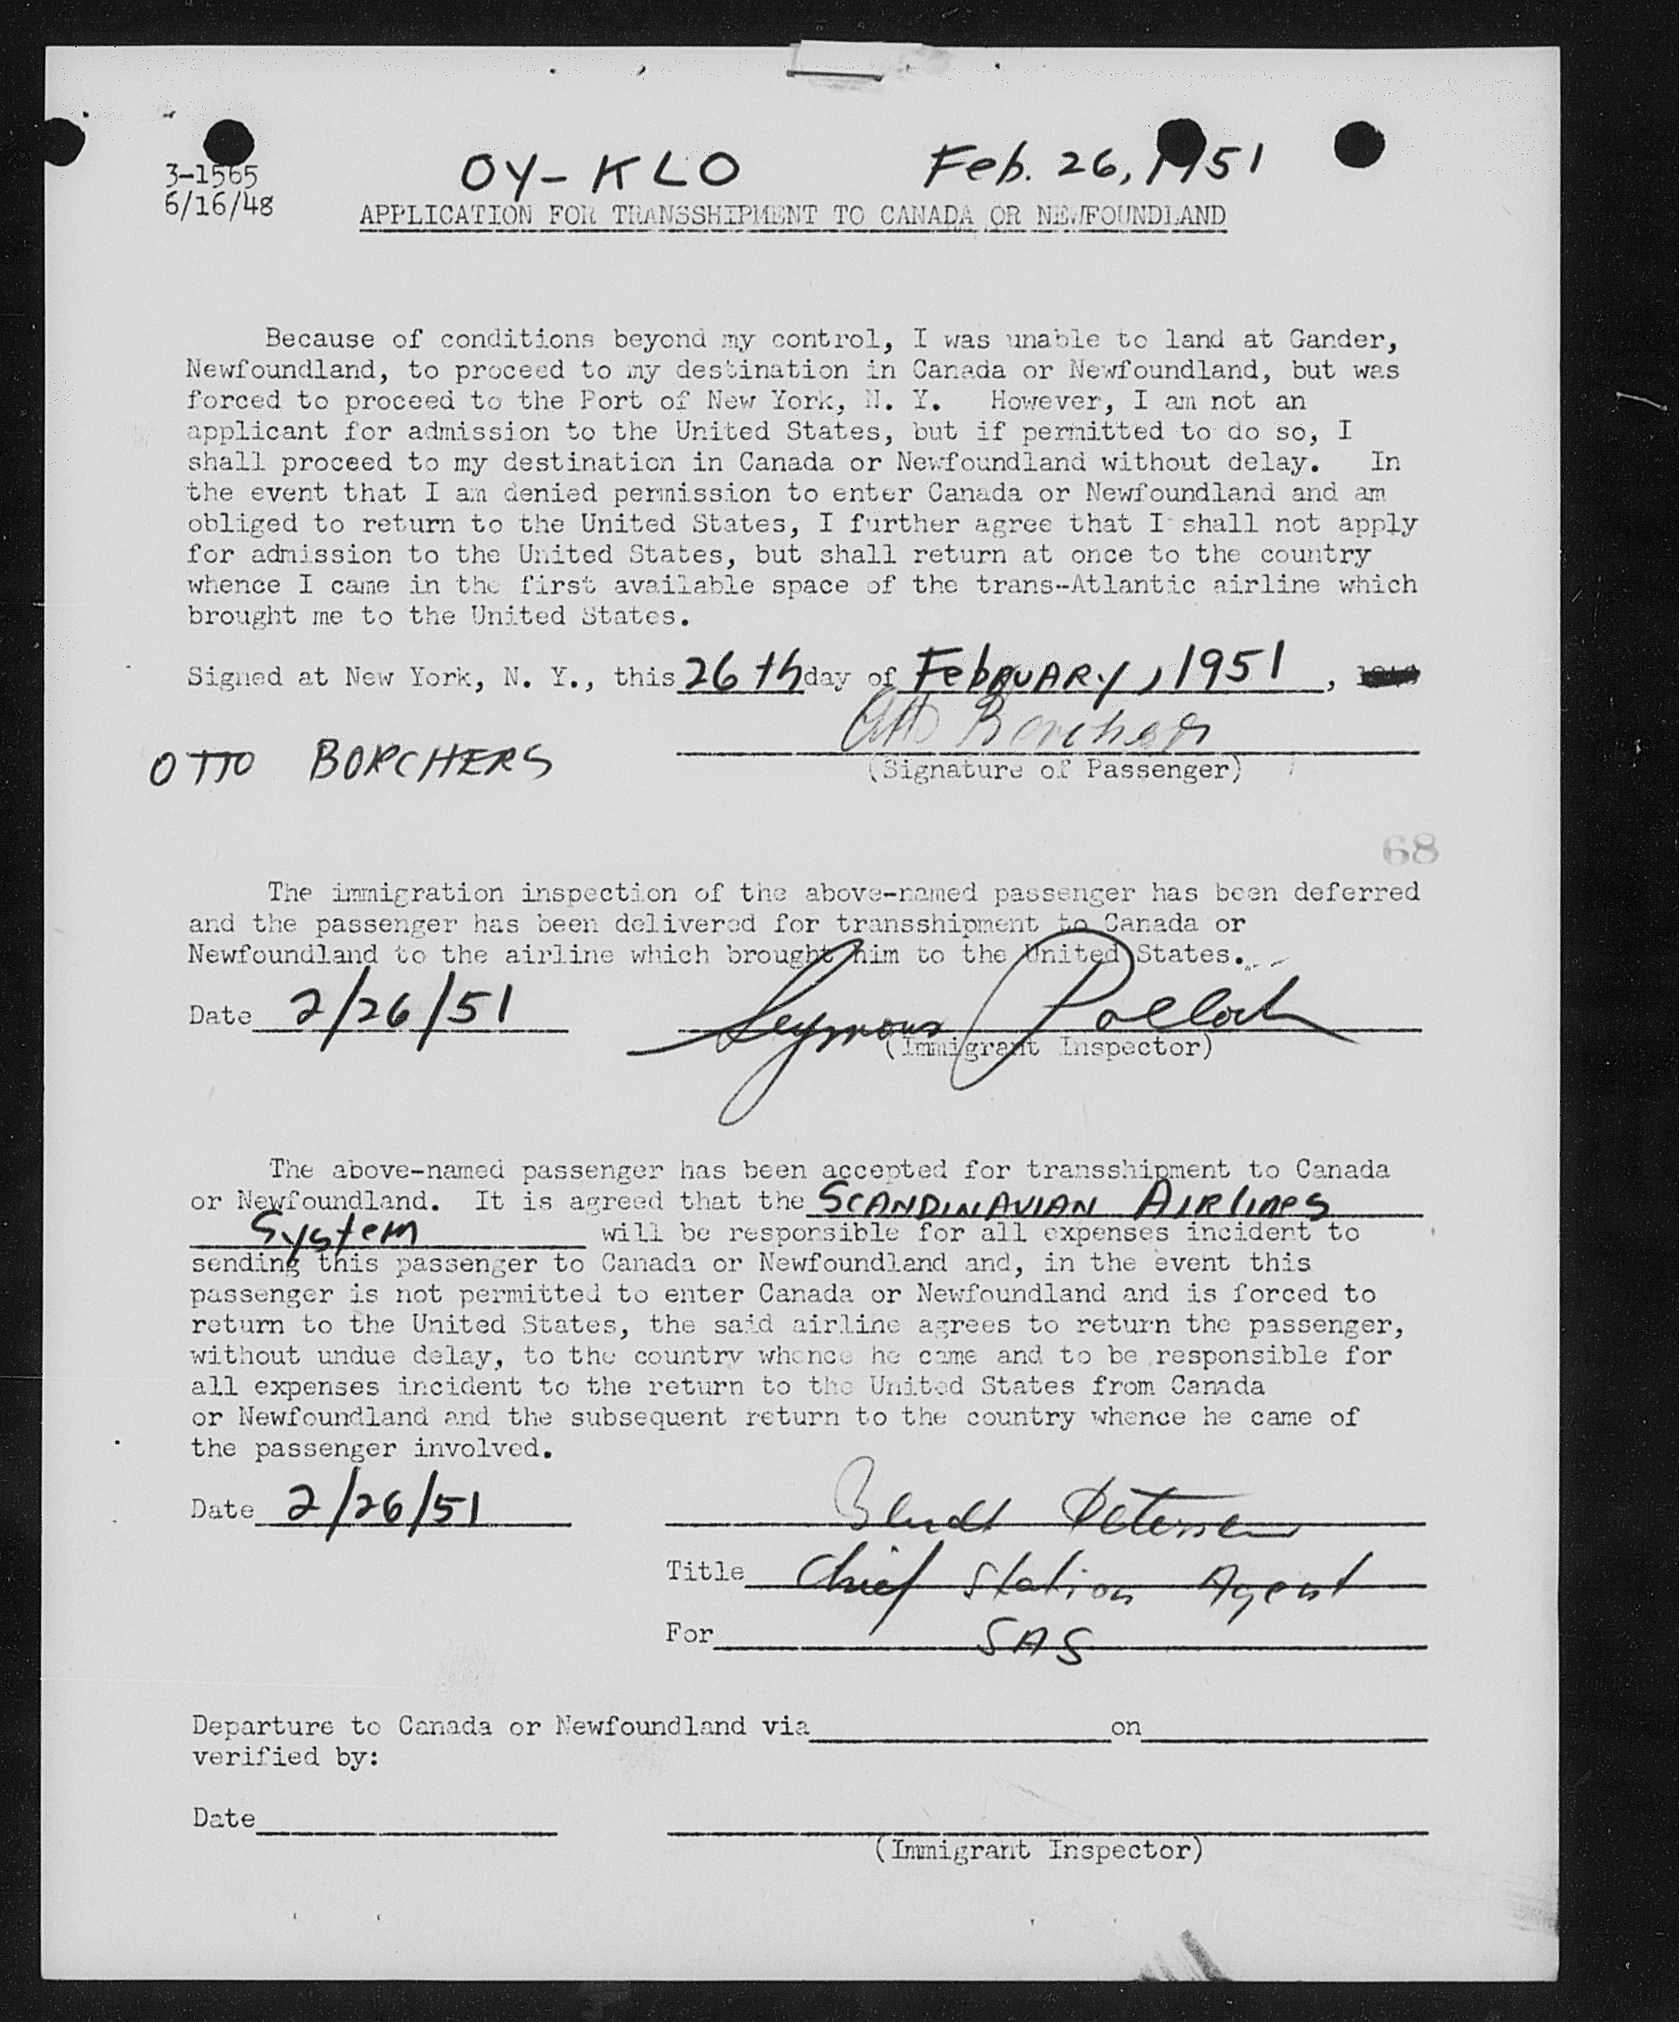 OY-KLO Feb. 26, 1951
3-1565
6/16/48
APPLICATION FOR TRANSSHIPMENT TO CANADA OR NEWFOUNDLAND
Because of conditions beyond my control, I was unable to land at Gander,
Newfoundland, to proceed to my destination in Canada or Newfoundland, but was
forced to proceed to the Port of New York, N. Y. However, I am not an
applicant for admission to the United States, but if permitted to do so, I
shall proceed to my destination in Canada or Newfoundland without delay. In
the event that I am denied permission to enter Canada or Newfoundland and am
obliged to return to the United States, I further agree that I shall not apply
for admission to the United States, but shall return at once to the country
whence I came in the first available space of the trans-Atlantic airline which
brought me to the United States.
Signed at New York, N. Y., this 26th day of February, 1951,
Otto Borchers
OTTO BORCHERS
(Signature of Passenger)
68
The immigration inspection of the above-named passenger has been deferred
and the passenger has been delivered for transshipment to Canada or
Newfoundland to the airline which brought him to the United States.
Date 2/26/51 Seymour Pollock
(Immigrant Inspector)
The above-named passenger has been accepted for transshipment to Canada
or Newfoundland. It is agreed that the SCANDINAVIAN AIRlines
System will be responsible for all expenses incident to
sending this passenger to Canada or Newfoundland and, in the event this
passenger is not permitted to enter Canada or Newfoundland and is forced to
return to the United States, the said airline agrees to return the passenger,
without undue delay, to the country whence he came and to be responsible for
all expenses incident to the return to the United States from Canada
or Newfoundland and the subsequent return to the country whence he came of
the passenger involved.
Date 2/26/51 Petersen
Title Chief Station Agent
For SAS
Departure to Canada or Newfoundland via on
verified by:
Date
(Immigrant Inspector)